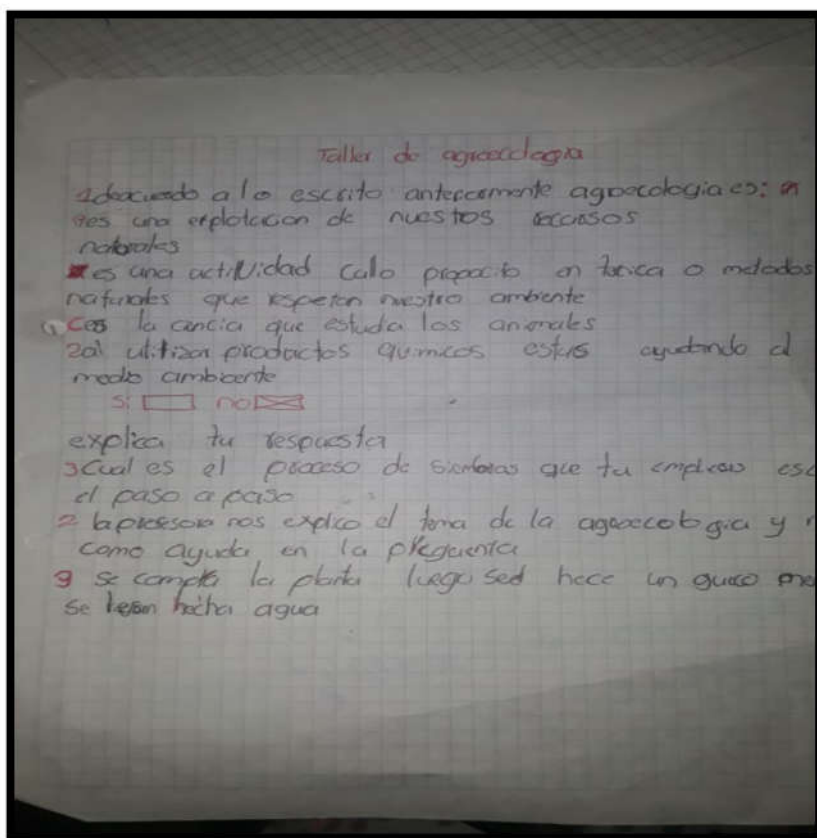 Taller de agroecologia
1deacuerdo a lo escrito antercormente agroecologia es:
es una explotacion de nuestros recursos
naturales
es una actiVidad cullo propocito en tecnica o metodos
naturales que respeten nuestro ambiente
Ces la cencia que estuda los animales
2al utitizar productos quimicos estas ayudando al
medio ambiente
si no
explica tu respuesta
3Cual es el proceso de siembras que tu empleas esc
el paso a paso
2 la profesora nos explico el tema de la agroecologia y
como ayuda en la
3 se compra la planta luego se hace un
se hecha agua